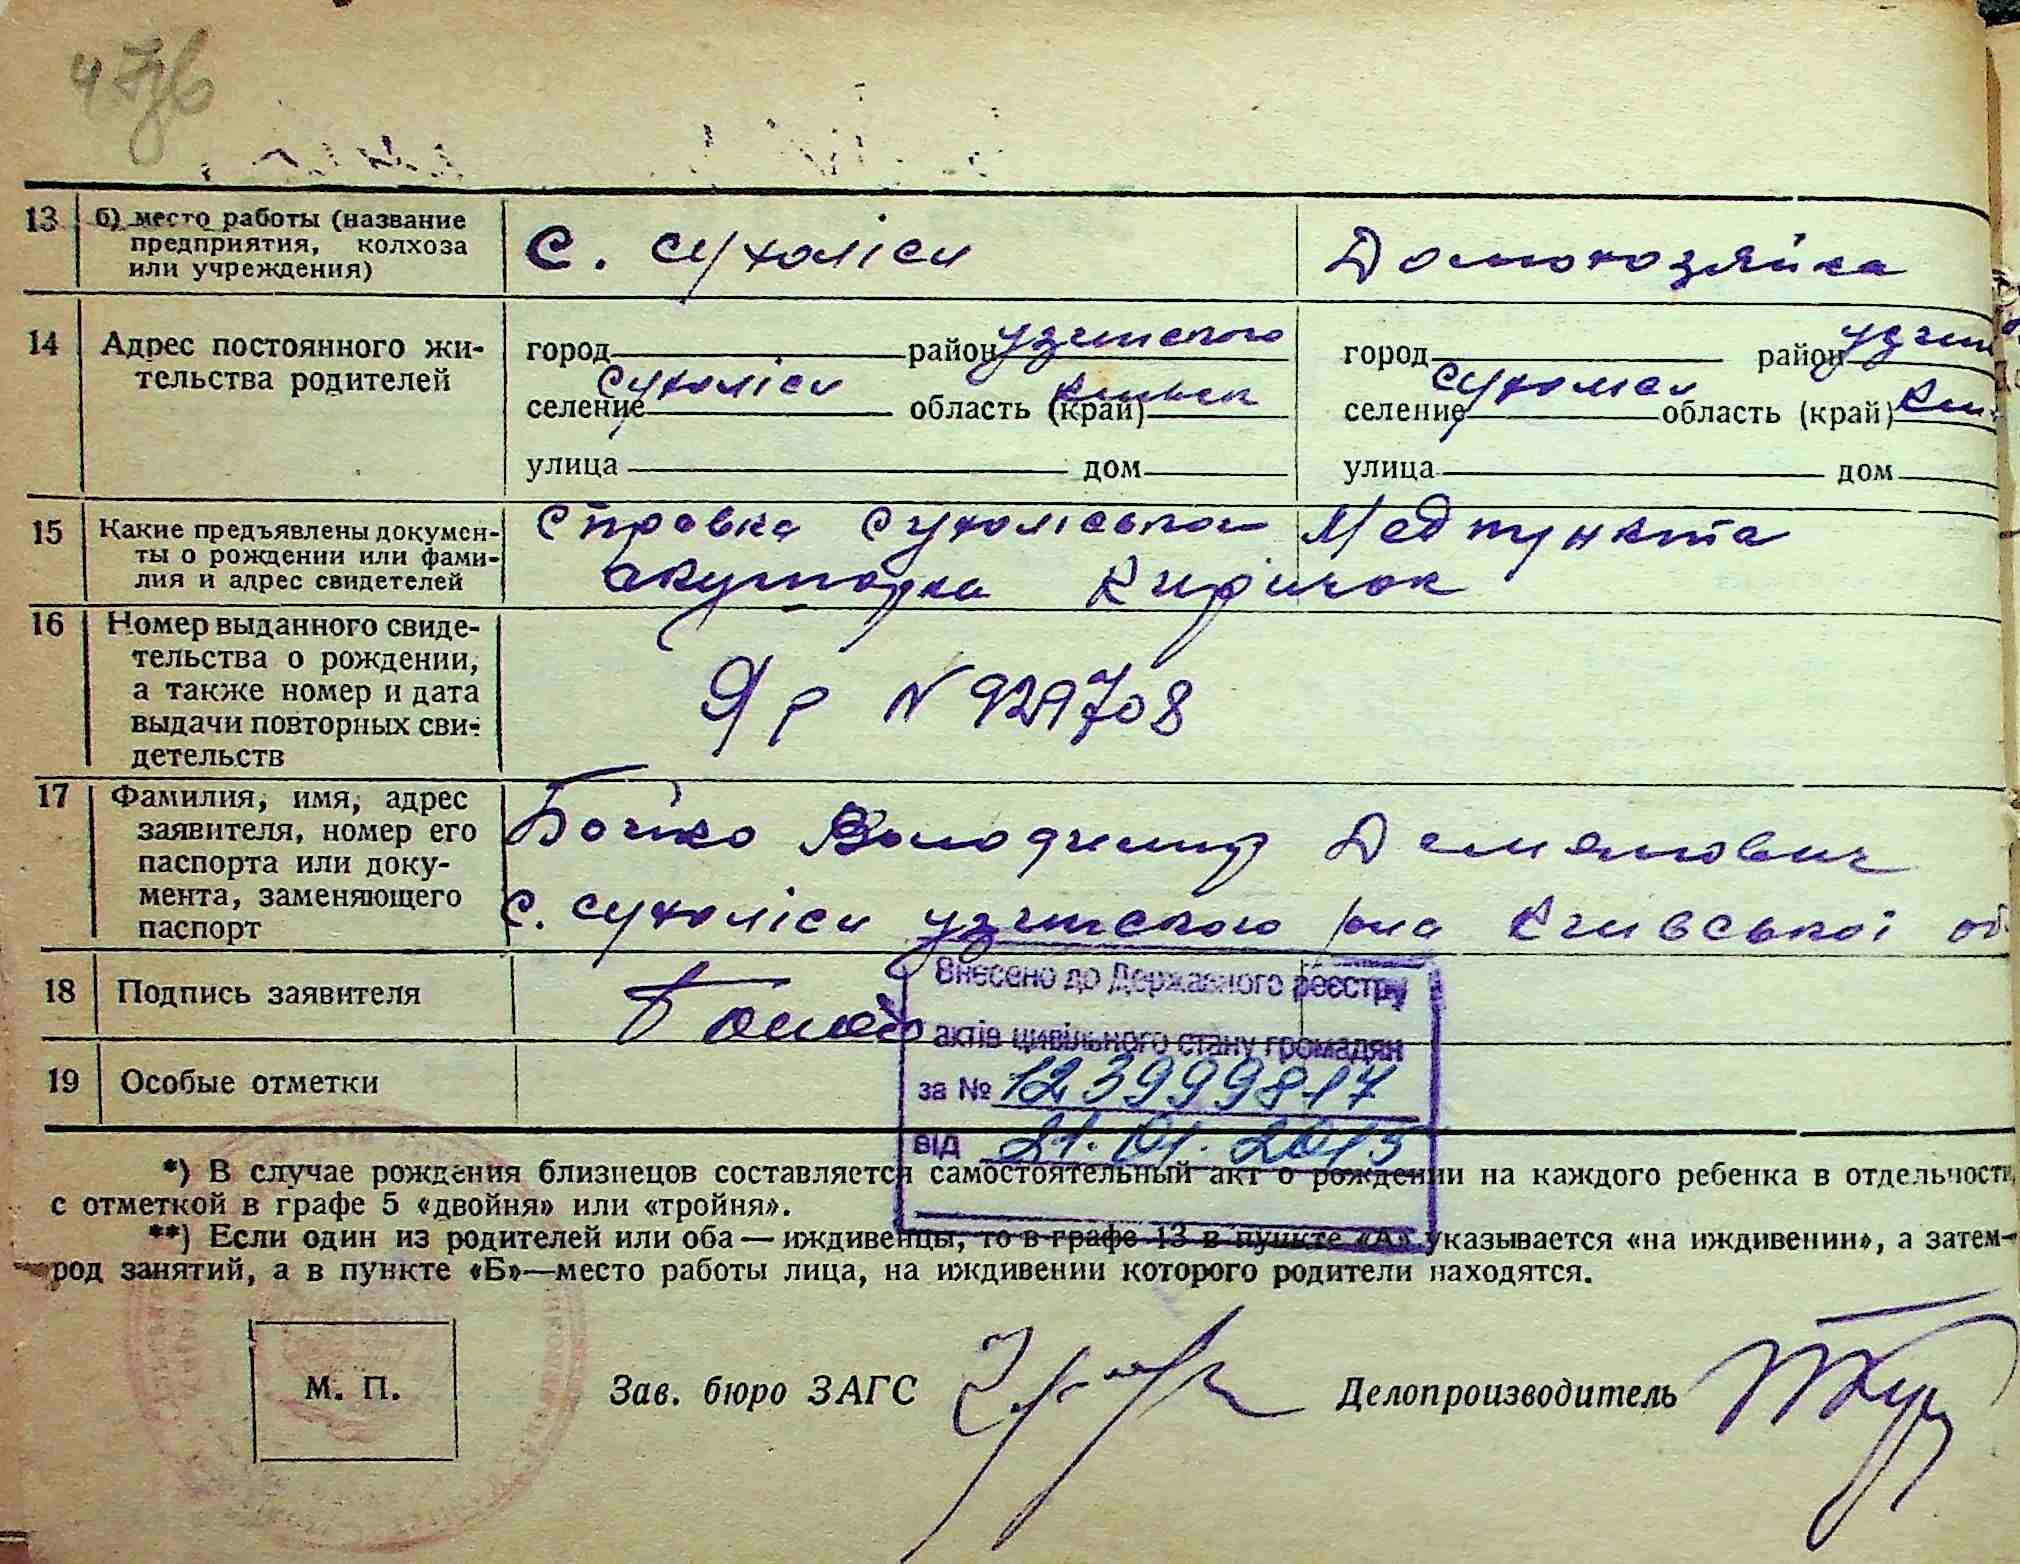 47зв
13 б) место работы (название предприятия, колхоза или учреждения) С. Сухоліси Домохозяйка
14 Адрес постоянного жительства родителей
город район Узинского город район Узин
селение Сухоліси область (край) Киевск селение Сухоліси область (край) Киев
улица дом улица дом
15 Какие предъявлены документы о рождении или фамилия и адрес свидетелей
Справка Сухоліського Медпункта
акушорка Кирічок
16 Номер выданного свидетельства о рождении, а также номер и дата выдачи повторных свидетельств
ЯР N 929708
17 Фамилия, имя, адрес заявителя, номер его паспорта или документа, заменяющего паспорт
Бойко Володимир Демянович
С. Сухоліси Узинского р-на Киивської об
18 Подпись заявителя
Внесено до Державного реєстру
актів цивільного стану громадян
19 Особые отметки
за № 123999817
від 21.01.2015
*) В случае рождения близнецов составляется самостоятельный акт о рождении на каждого ребенка в отдельности,
с отметкой в графе 5 «двойня» или «тройня».
**) Если один из родителей или оба — иждивенцы, то в графе 13 в пункте «А» указывается «на иждивении», а затем—
род занятий, а в пункте «Б»—место работы лица, на иждивении которого родители находятся.
М. П. Зав. бюро ЗАГС Делопроизводитель